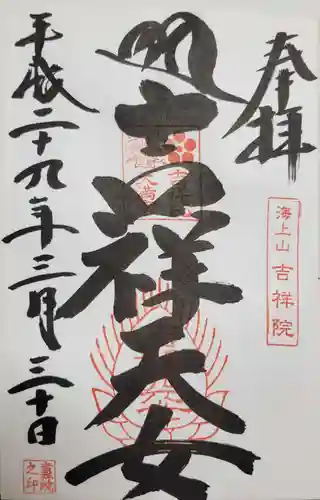 奉拝
吉祥天女
平成二十九年三月三十日
海上山 吉祥院